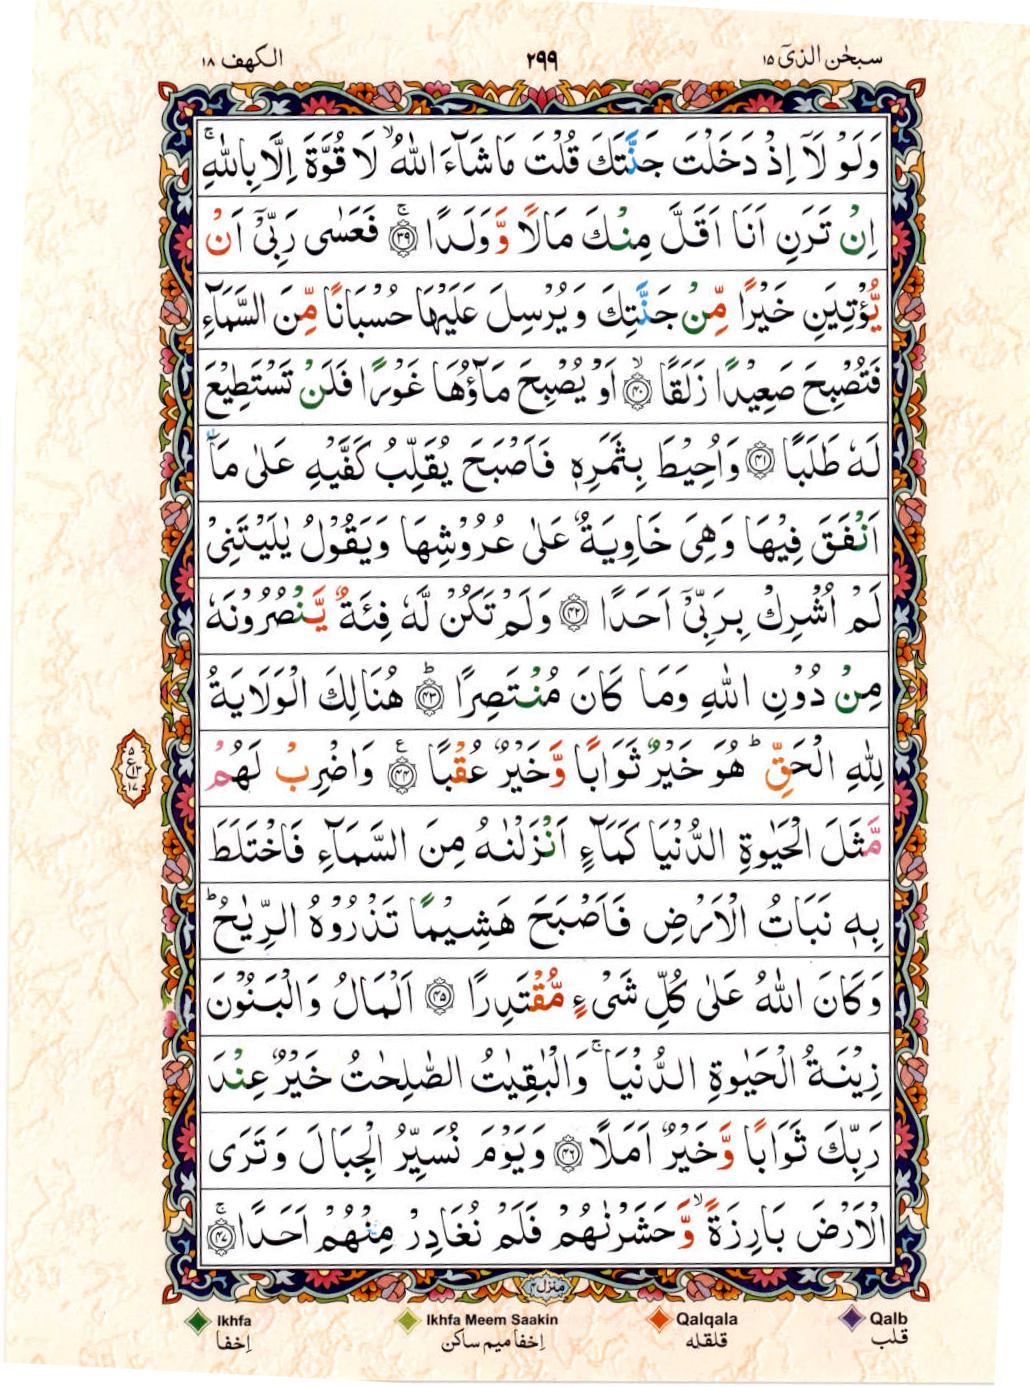 سبحٰن الذیٓ ۱۵
۲۹۹
الكهف ۱۸
وَلَوْ لَآ اِذْ دَخَلْتَ جَنَّتَكَ قُلْتَ مَا شَآءَ اللّٰهُ ۙ لَا قُوَّةَ اِلَّا بِاللّٰهِ ۚ
اِنْ تَرَنِ اَنَا اَقَلَّ مِنْكَ مَالًا وَّوَلَدًا ۚ ﴿۳۹﴾ فَعَسٰى رَبِّیْۤ اَنْ
يُّؤْتِيَنِ خَيْرًا مِّنْ جَنَّتِكَ وَيُرْسِلَ عَلَيْهَا حُسْبَانًا مِّنَ السَّمَآءِ
فَتُصْبِحَ صَعِيْدًا زَلَقًا ۙ ﴿۴۰﴾ اَوْ يُصْبِحَ مَآؤُهَا غَوْرًا فَلَنْ تَسْتَطِيْعَ
لَهٗ طَلَبًا ﴿۴۱﴾ وَاُحِيْطَ بِثَمَرِهٖ فَاَصْبَحَ يُقَلِّبُ كَفَّيْهِ عَلٰى مَاۤ
اَنْفَقَ فِيْهَا وَهِیَ خَاوِيَةٌ عَلٰى عُرُوْشِهَا وَيَقُوْلُ يٰلَيْتَنِیْ
لَمْ اُشْرِكْ بِرَبِّیْۤ اَحَدًا ﴿۴۲﴾ وَلَمْ تَكُنْ لَّهٗ فِئَةٌ يَّنْصُرُوْنَهٗ
مِنْ دُوْنِ اللّٰهِ وَمَا كَانَ مُنْتَصِرًا ؕ ﴿۴۳﴾ هُنَالِكَ الْوَلَايَةُ
لِلّٰهِ الْحَقِّ ؕ هُوَ خَيْرٌ ثَوَابًا وَّخَيْرٌ عُقْبًا ﴿۴۴﴾ ع وَاضْرِبْ لَهُمْ
۵
ع ۱۳
۱۷
مَّثَلَ الْحَيٰوةِ الدُّنْيَا كَمَآءٍ اَنْزَلْنٰهُ مِنَ السَّمَآءِ فَاخْتَلَطَ
بِهٖ نَبَاتُ الْاَرْضِ فَاَصْبَحَ هَشِيْمًا تَذْرُوْهُ الرِّيٰحُ ؕ
وَكَانَ اللّٰهُ عَلٰى كُلِّ شَیْءٍ مُّقْتَدِرًا ﴿۴۵﴾ اَلْمَالُ وَالْبَنُوْنَ
زِيْنَةُ الْحَيٰوةِ الدُّنْيَا ۚ وَالْبٰقِيٰتُ الصّٰلِحٰتُ خَيْرٌ عِنْدَ
رَبِّكَ ثَوَابًا وَّخَيْرٌ اَمَلًا ﴿۴۶﴾ وَيَوْمَ نُسَيِّرُ الْجِبَالَ وَتَرَى
الْاَرْضَ بَارِزَةً ۙ وَّحَشَرْنٰهُمْ فَلَمْ نُغَادِرْ مِنْهُمْ اَحَدًا ۚ ﴿۴۷﴾
منزل ۴
Ikhfa
اِخفا
Ikhfa Meem Saakin
اِخفا میم ساكن
Qalqala
قلقله
Qalb
قلب